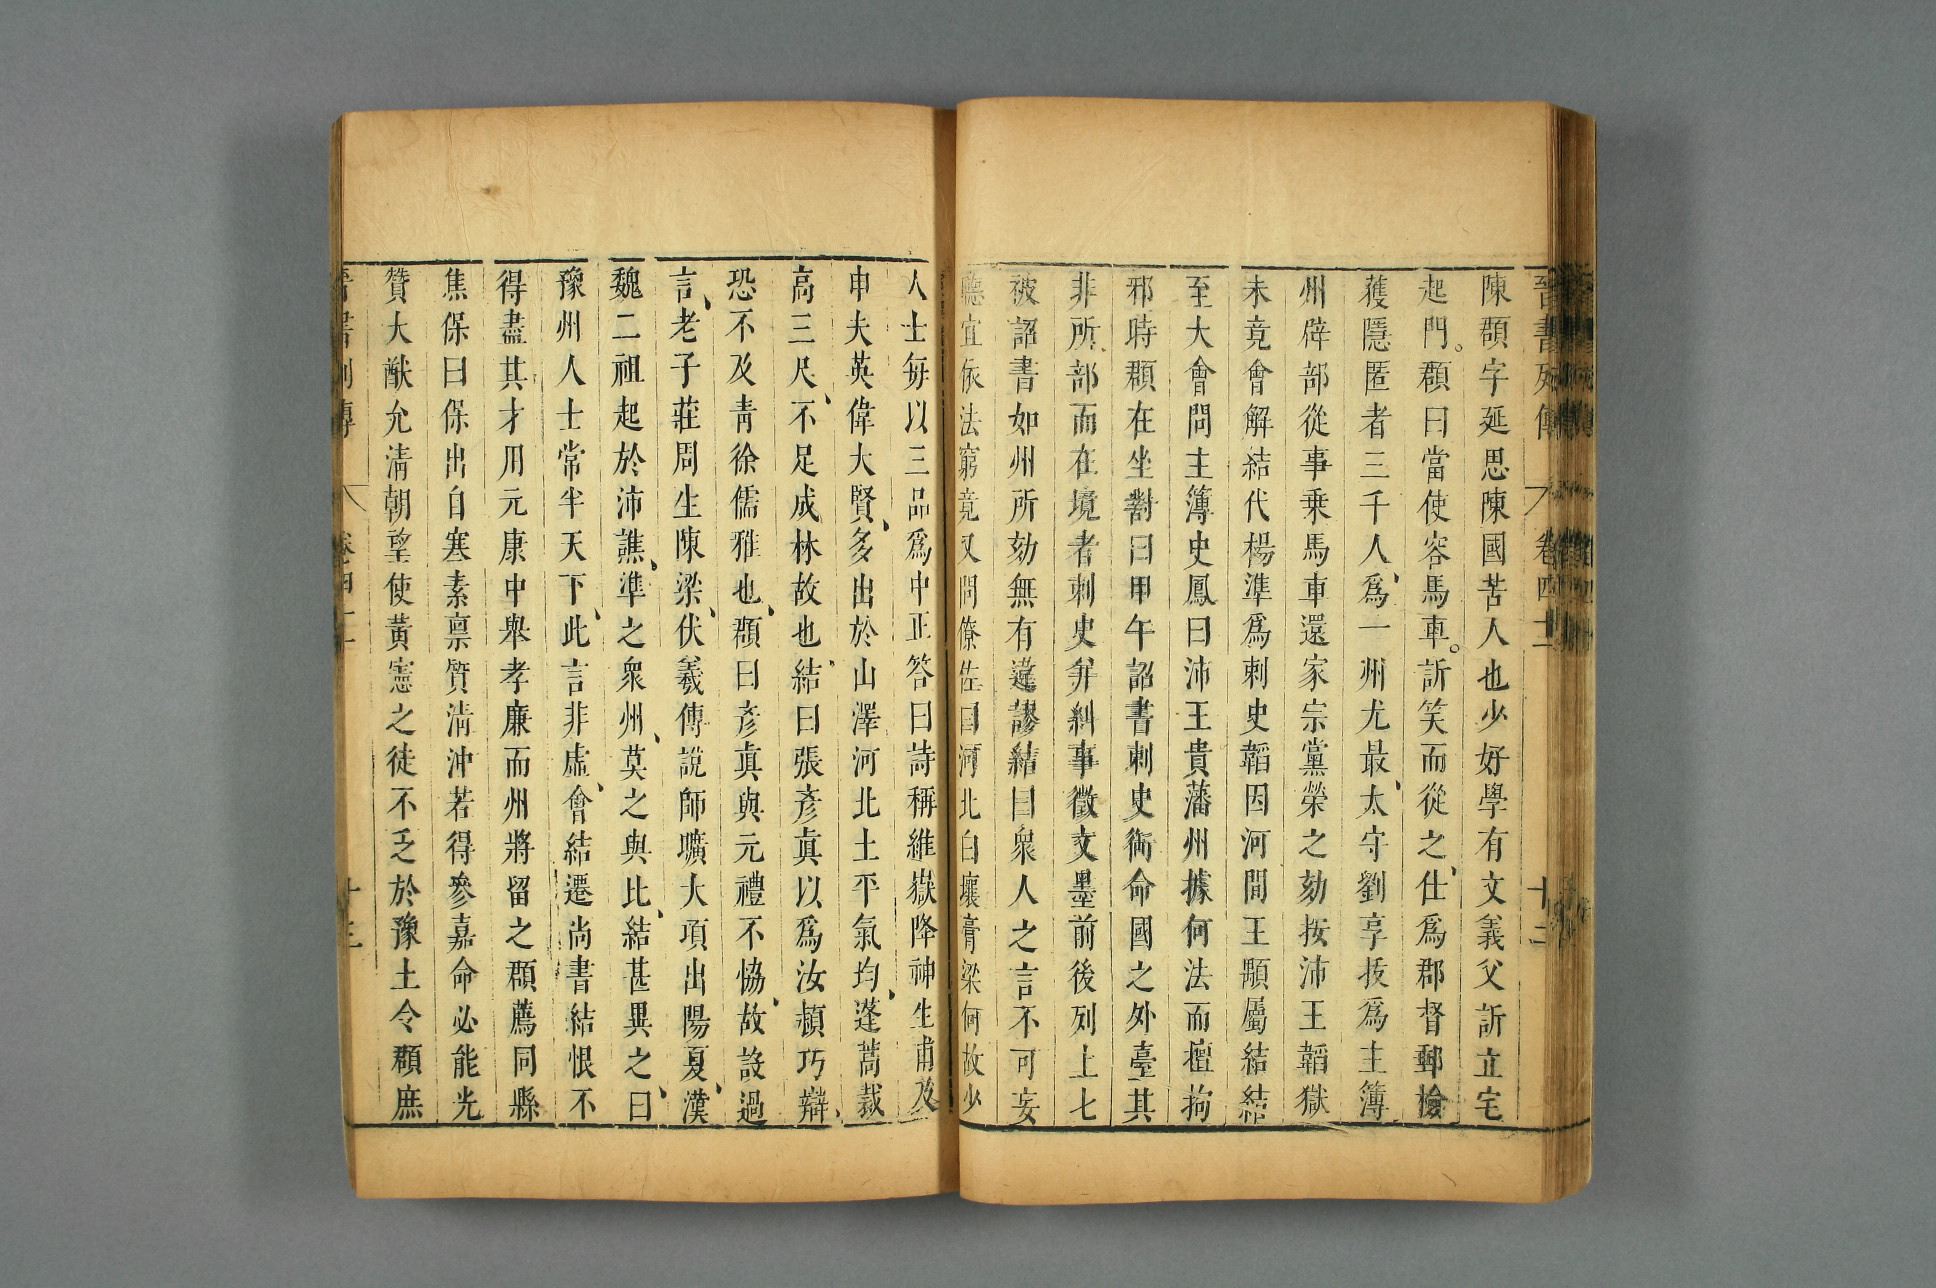 晉書列傳 卷四十一 十二
陳頵字延思陳國苦人也少好學有文義父訢立宅
起門。頵曰當使容馬車。訢笑而從之、仕爲郡督郵檢
獲隱匿者三千人、爲一州尤最、太守劉享拔爲主簿
州辟部從事乗馬車還家宗黨榮之劾按沛王韜獄
未竟會解結代楊準爲刺史韜因河間王顒屬結結
至大會問主簿史鳳曰沛王貴藩州據何法而擅拘
邪時頵在坐對曰甲午詔書刺史銜命國之外臺其
非所、部而在境者刺史并糾事徵文墨前後列上七
被詔書如州所劾無有違謬結曰衆人之言不可妄
聽宜依法窮竟又問僚佐曰河北白壤膏粱何故少
人士每以三品爲中正答曰詩稱維嶽降神生甫及
申夫英偉大賢、多出於山澤河北土平氣均、蓬蒿裁
高三尺、不足成林故也、結曰張彥真以爲汝潁巧辯、
恐不及青徐儒雅也、頵曰彥真與元禮不協、故設過
言、老子莊周生陳梁、伏羲傅說師曠大項出陽夏、漢
魏二祖起於沛譙、準之衆州、莫之與比、結甚異之、曰
豫州人士常半天下、此言非虛、會結遷尚書結恨不
得盡其才用元康中舉孝廉而州將留之頵薦同縣
焦保曰保出自寒素稟質清沖若得參嘉命必能光
贊大猷允清朝望使黃憲之徒不乏於豫土令頵庶
晉書列傳 卷四十一 十三